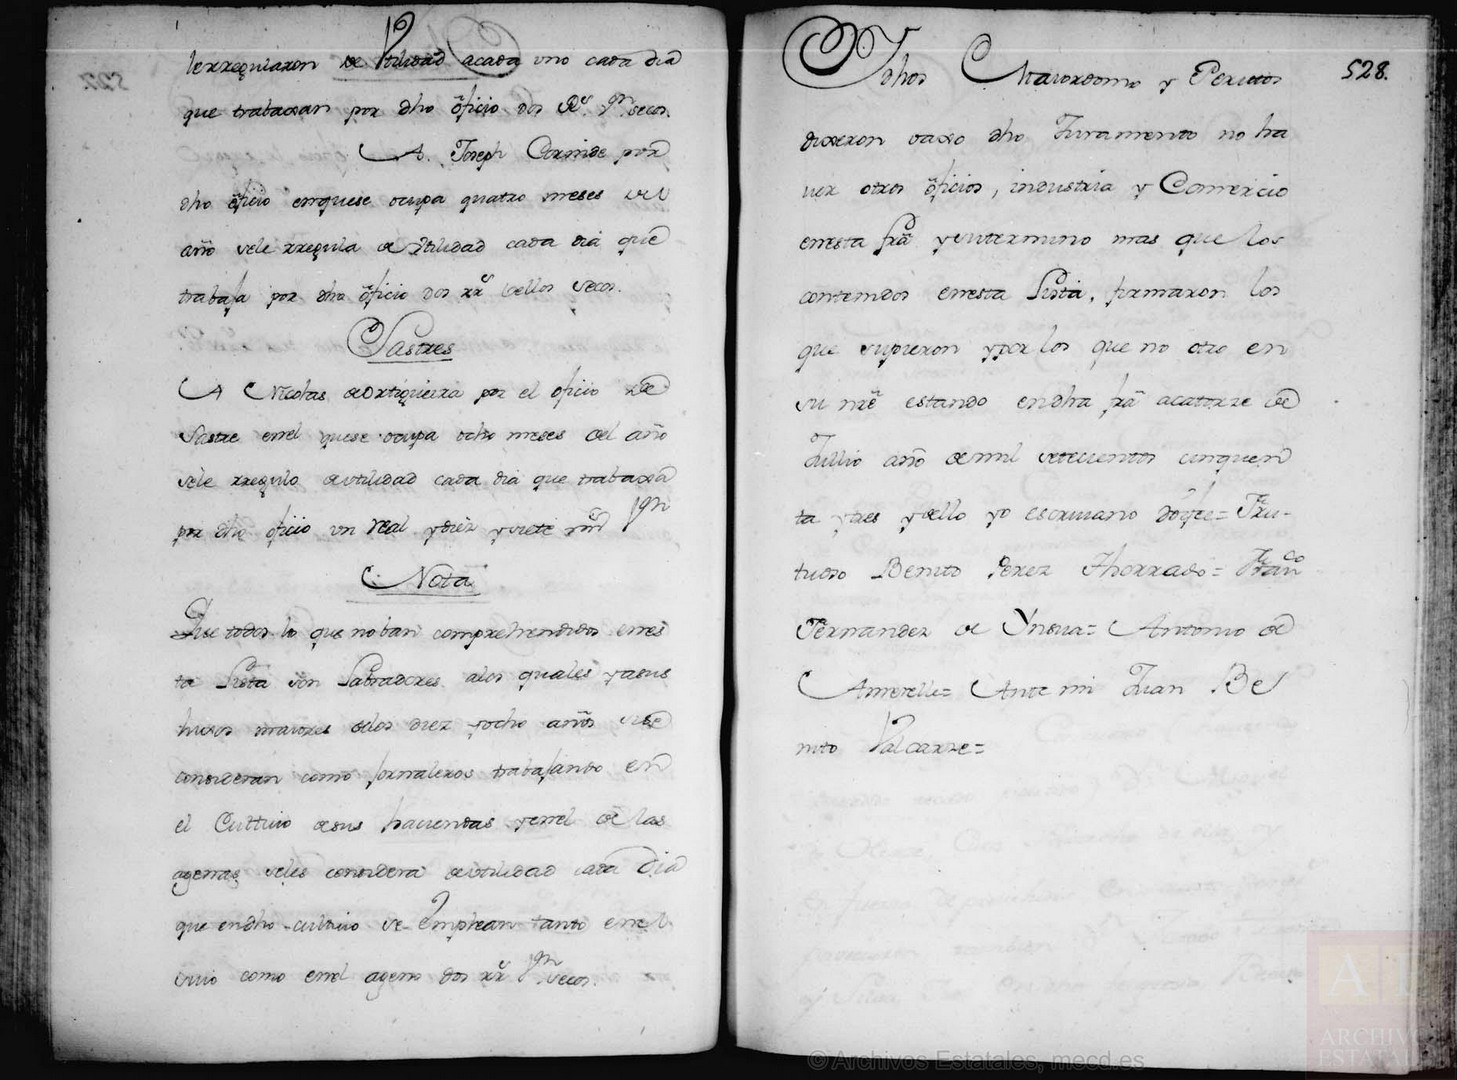 le rregularon de Vtilidad acada uno cada dia
que trabaxan por dho oficio dos Rs. Vn secos.
A. Joseph Cornide por
dho oficio enquese ocupa quatro meses del
año sele rregula de Vtilidad cada dia que
trabaja por dho oficio dos rrs. Vellon secos.
Sastres
A Nicolas de Ortigueira por el oficio de
Sastre enel quese ocupa ocho meses del año
sele rregulo de utilidad cada dia que trabaxa
por dho oficio un Real ydiez ysiete mrs Vn
Nota
Que todos lo que noban comprehendidos enes
ta Lista son Labradores alos quales yasus
hixos maiores delos diez yocho años sise
consideran como Jornaleros trabajando en
el Cultivo desus haciendas yenel de las
agenas seles considera deutilidad cada Dia
que endho cultivo se Emplean tanto enel
suio como enel ageno dos rrs Vn secos.
528.
Dhos Maiordomo y Peritos
dixeron vaxo dho Juramento no ha
uer otros oficios, industria y Comercio
enesta fra ysutermino mas que los
contenidos enesta Lista, firmaron los
que supieron ypor los que no otro en
su nre estando endha fra acatorze de
Jullio año demil setecientos cinquen
ta ytres ydello yo escriuano doyfee= Fru-
tuoso Benito Perez Thorrado= Franco
Fernandez de Ynsua= Antonio de
Amerelle= Ante mi Juan Be
nito Valcarze=
© Archivos Estatales, mecd.es
ARCHIVOS